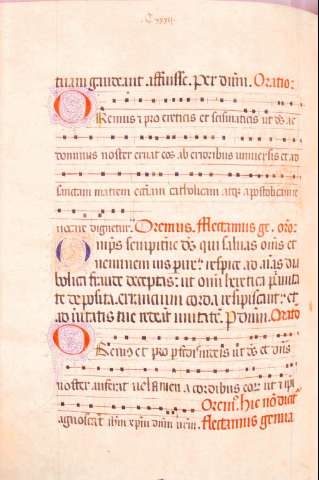 C xxxij
tuam gaudeant affuisse. Per dnm. Oratio:
Oremus ⁊ pro ereticis et scismaticis ut ds ac
dominus noster eruat eos ab erroribus universis et ad
sanctam matrem ecclam catholicam atqz apostolicam re
uocare dignetur. Oremus. Flectamus ge. oro.
Omps sempiterne ds qui saluas omīs et
neminem uis perire: respice ad aīas dia
bolica fraude deceptas: ut omni heretica prauita
te deposita. errancium corda resipiscant: et
ad ueritatis tue redeant unitatē. P dnm. Orato
Oremus et pro perfidis iudeis ut ds et dns
noster auferat uelamen a cordibus eoꝝ ut ⁊ ipi
Orem9. hic nō dicit
agnoscant ihm xpm dnm nrm. Flectamus genua